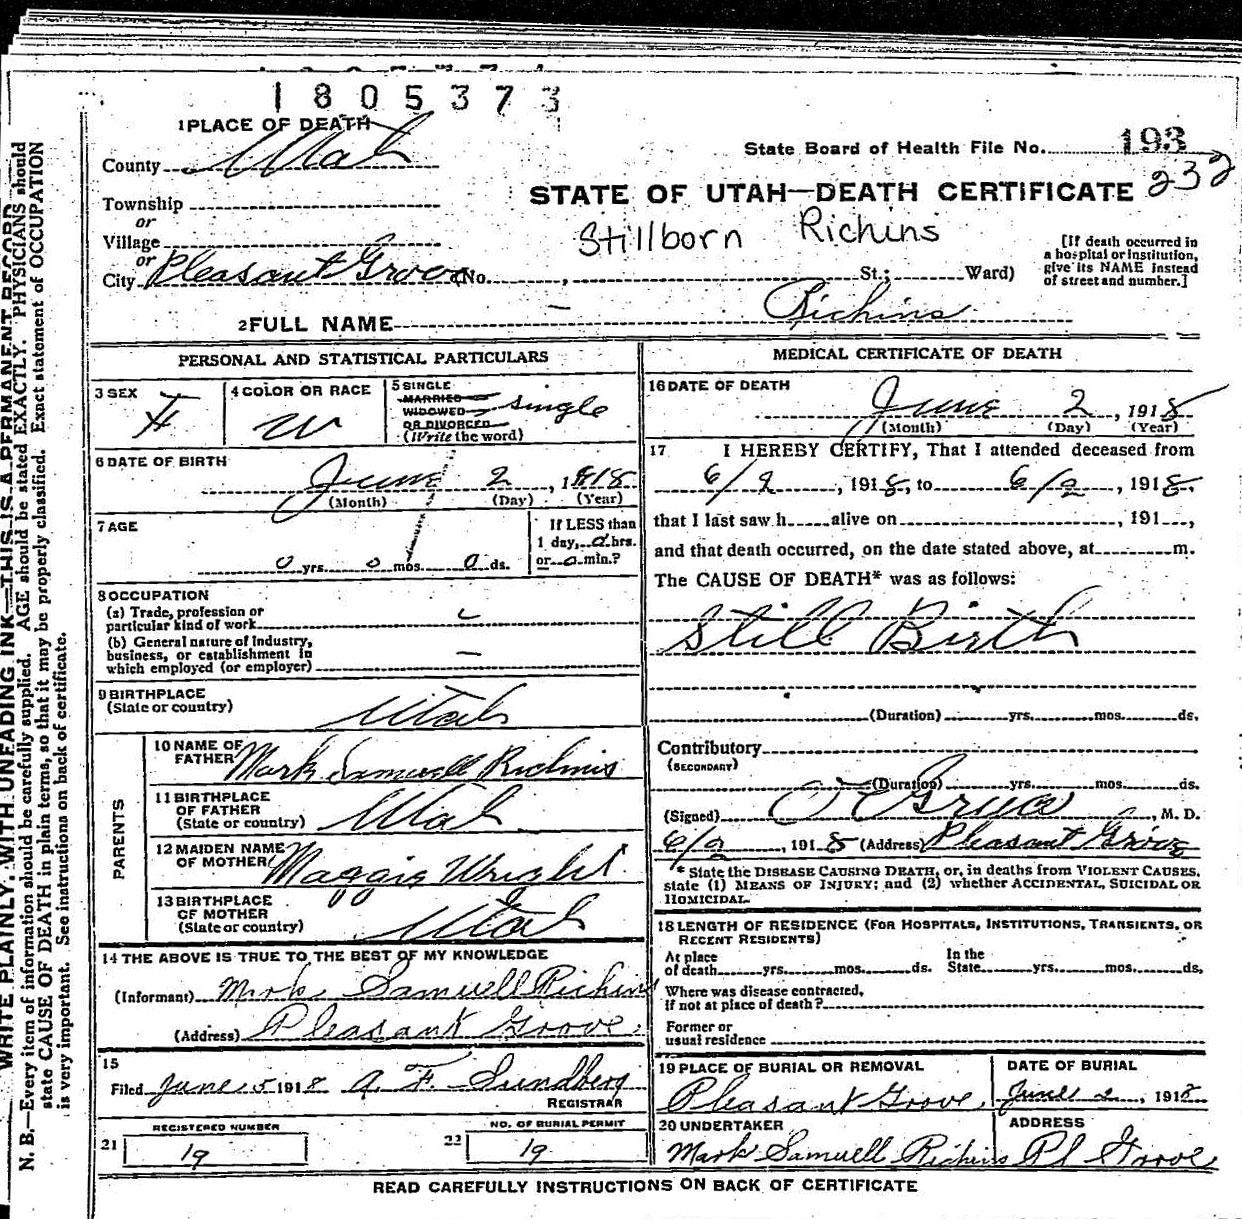 1805373
1 PLACE OF DEATH
County Utah
State Board of Health File No. 193
232
STATE OF UTAH—DEATH CERTIFICATE
Township
or
Village
Stillborn Richins
or
City Pleasant Grove No. , St.; Ward)
[If death occurred in
a hospital or institution,
give its NAME instead
of street and number.]
2 FULL NAME — Richins
PERSONAL AND STATISTICAL PARTICULARS
3 SEX
F
4 COLOR OR RACE
W
5 SINGLE
MARRIED
WIDOWED
OR DIVORCED
(Write the word)
single
6 DATE OF BIRTH
June 2, 1918
(Month) (Day) (Year)
7 AGE
0 yrs. 0 mos. 0 ds.
If LESS than
1 day, 0 hrs.
or 0 min.?
8 OCCUPATION
(a) Trade, profession or
particular kind of work
(b) General nature of Industry,
business, or establishment in
which employed (or employer) —
9 BIRTHPLACE
(State or country) Utah
PARENTS
10 NAME OF
FATHER Mark Samuell Richins
11 BIRTHPLACE
OF FATHER
(State or country) Utah
12 MAIDEN NAME
OF MOTHER Maggie Wright
13 BIRTHPLACE
OF MOTHER
(State or country) Utah
14 THE ABOVE IS TRUE TO THE BEST OF MY KNOWLEDGE
(Informant) Mark Samuell Richins
(Address) Pleasant Grove
15
Filed June 5 1918 A F Sundberg
REGISTRAR
REGISTERED NUMBER
21 19
NO. OF BURIAL PERMIT
22 19
MEDICAL CERTIFICATE OF DEATH
16 DATE OF DEATH
June 2, 1918
(Month) (Day) (Year)
17 I HEREBY CERTIFY, That I attended deceased from
6/2, 1918, to 6/2, 1918,
that I last saw h alive on , 191 ,
and that death occurred, on the date stated above, at m.
The CAUSE OF DEATH* was as follows:
Still Birth
(Duration) yrs. mos. ds.
Contributory
(SECONDARY)
(Duration) yrs. mos. ds.
(Signed) , M. D.
6/2, 1918 (Address) Pleasant Grove
* State the DISEASE CAUSING DEATH, or, in deaths from VIOLENT CAUSES,
state (1) MEANS OF INJURY; and (2) whether ACCIDENTAL, SUICIDAL OR
HOMICIDAL.
18 LENGTH OF RESIDENCE (FOR HOSPITALS, INSTITUTIONS, TRANSIENTS, OR
RECENT RESIDENTS)
At place
of death yrs. mos. ds.
In the
State yrs. mos. ds.
Where was disease contracted,
if not at place of death?
Former or
usual residence
19 PLACE OF BURIAL OR REMOVAL
Pleasant Grove
DATE OF BURIAL
June 2, 1918
20 UNDERTAKER
Mark Samuell Richins
ADDRESS
Pl Grove
READ CAREFULLY INSTRUCTIONS ON BACK OF CERTIFICATE
WRITE PLAINLY WITH UNFADING INK—THIS IS A PERMANENT RECORD
N. B.—Every item of information should be carefully supplied. AGE should be stated EXACTLY. PHYSICIANS should
state CAUSE OF DEATH in plain terms, so that it may be properly classified. Exact statement of OCCUPATION
is very important. See instructions on back of certificate.